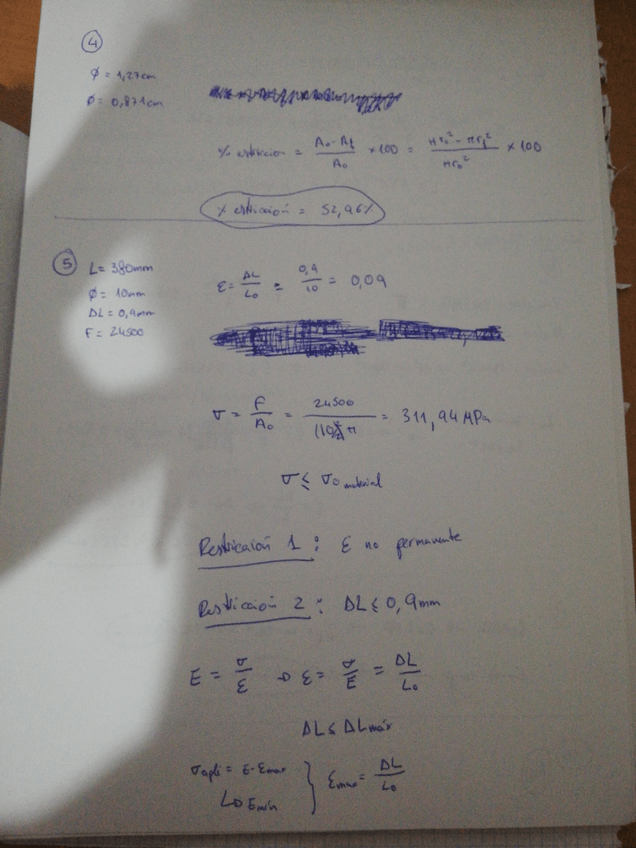 4
Ø = 1,27cm
Ø = 0,871cm
% estricción = (A₀ - A_f) / A₀ × 100 = (πr₀² - πr_f²) / πr₀² × 100
% estricción = 52,96%
5
L = 380mm
Ø = 10mm
ΔL = 0,9mm
F = 24500
ε = ΔL / L₀ = 0,9 / 10 = 0,09
σ = F / A₀ = 24500 / π = 311,94 MPa
σ ≤ σ₀ material
Restricción 1 : ε no permanente
Restricción 2 : ΔL ≤ 0,9mm
E = σ / ε → ε = σ / E = ΔL / L₀
ΔL ≤ ΔL máx
σ apli = E · ε max } ε max = ΔL / L₀
L₀ E mín